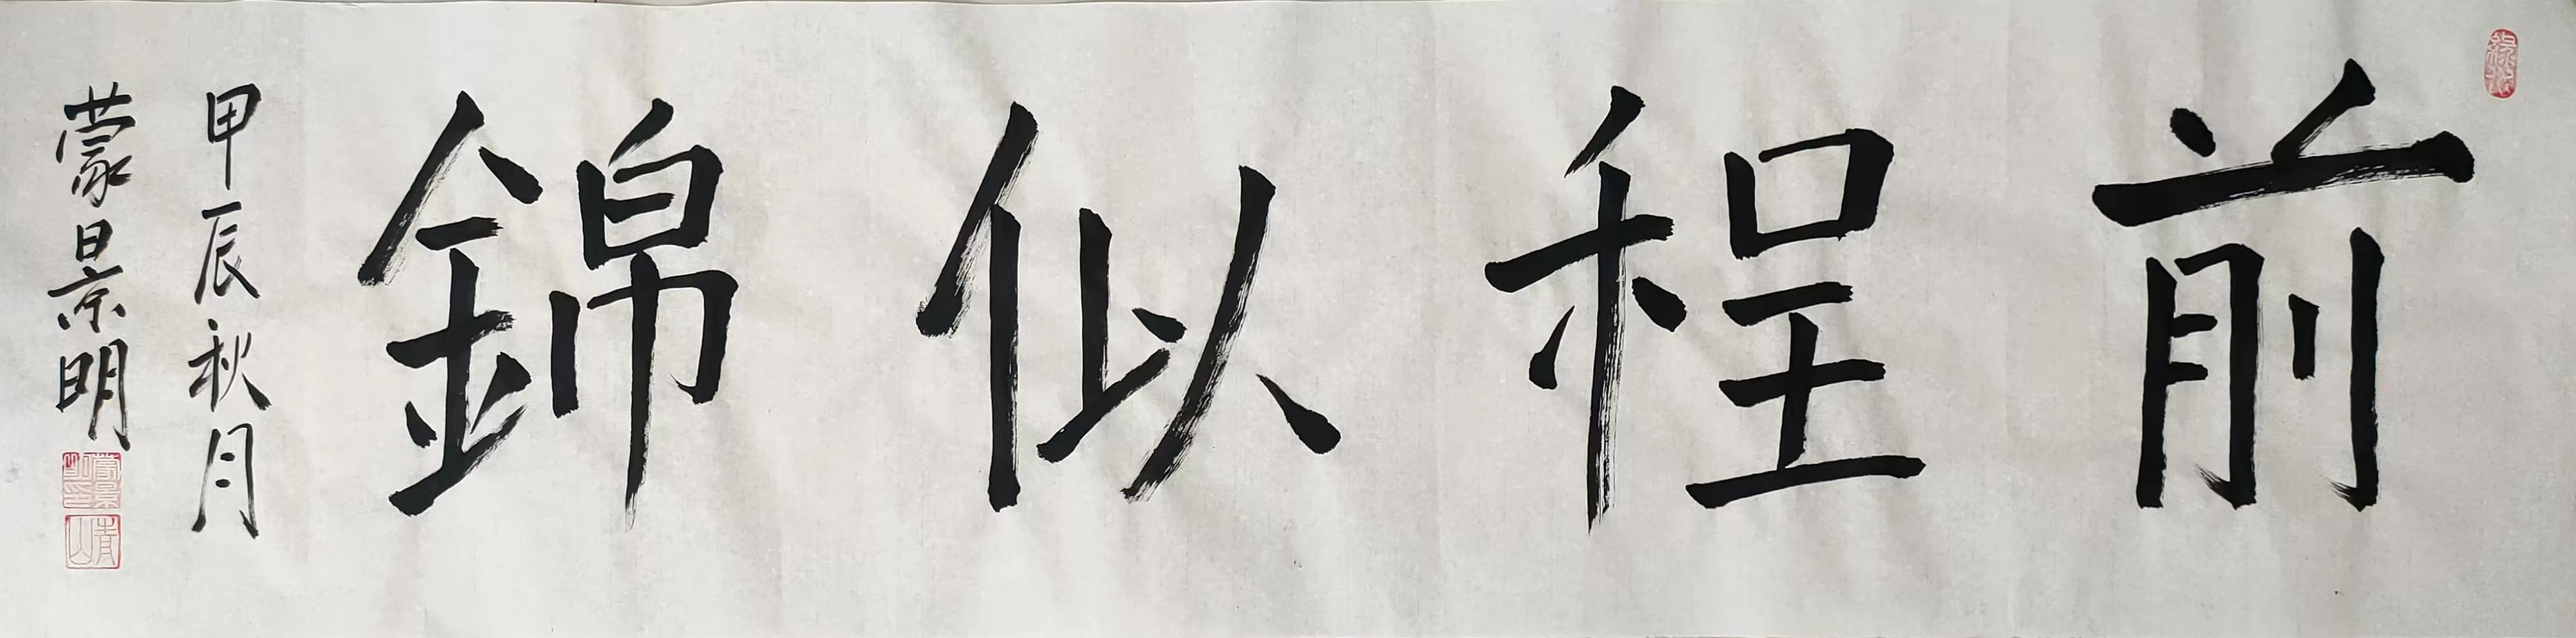 前程似錦
甲辰秋月
蒙景明